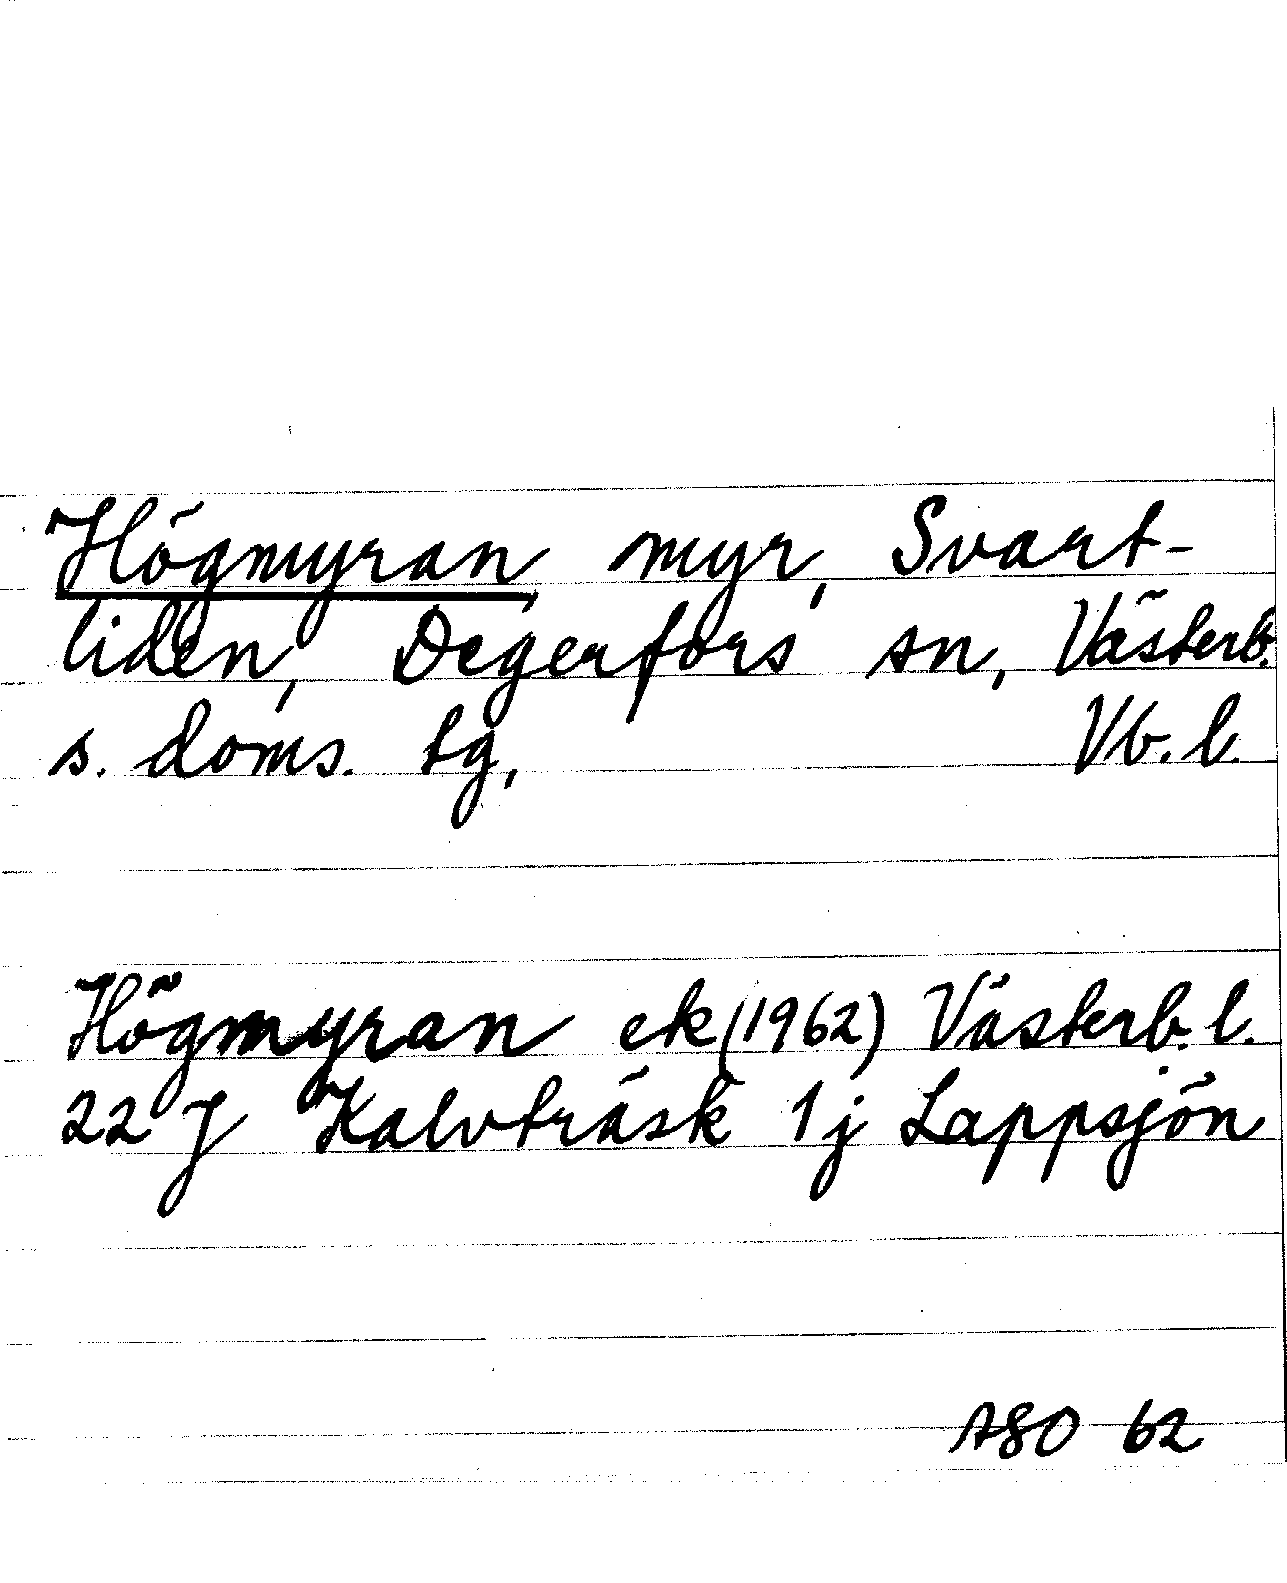 Högmyran, myr, Svart-
liden, Degerfors sn, Västerb.
s. doms. tg, Vb. l.
Högmyran ek (1962) Västerb. l.
22 J Kalvträsk 1 j Lappsjön
ASO 62